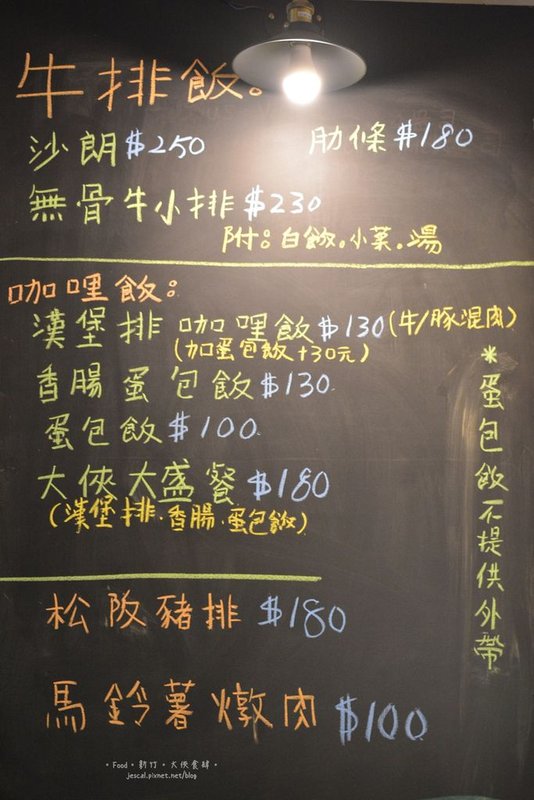 牛排飯：
沙朗$250 肋條$180
無骨牛小排$230
附：白飯。小菜。湯
咖哩飯：
漢堡排咖哩飯$130(牛/豚混肉)
(加蛋包飯+30元)
香腸蛋包飯$130
蛋包飯$100
大俠大盛餐$180
(漢堡排.香腸.蛋包飯)
*蛋包飯不提供外帶
松阪豬排$180
馬鈴薯燉肉$100
•Food•新竹•大俠食肆•
jescal.pixnet.net/blog